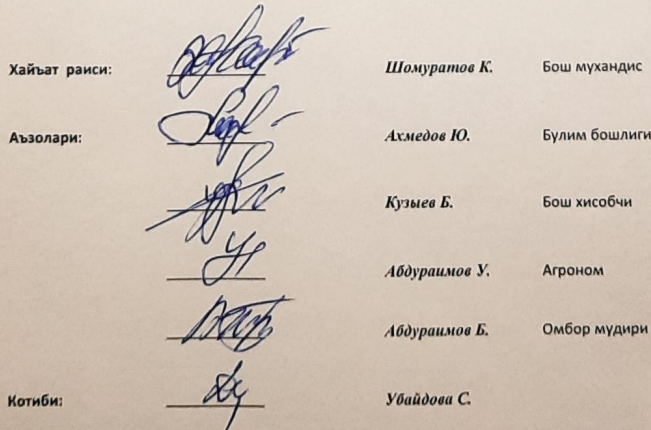 Хайъат раиси: Шомуратов К. Бош мухандис
Аъзолари: Ахмедов Ю. Булим бошлиги
Кузыев Б. Бош хисобчи
Абдураимов У. Агроном
Абдураимов Б. Омбор мудири
Котиби: Убайдова С.